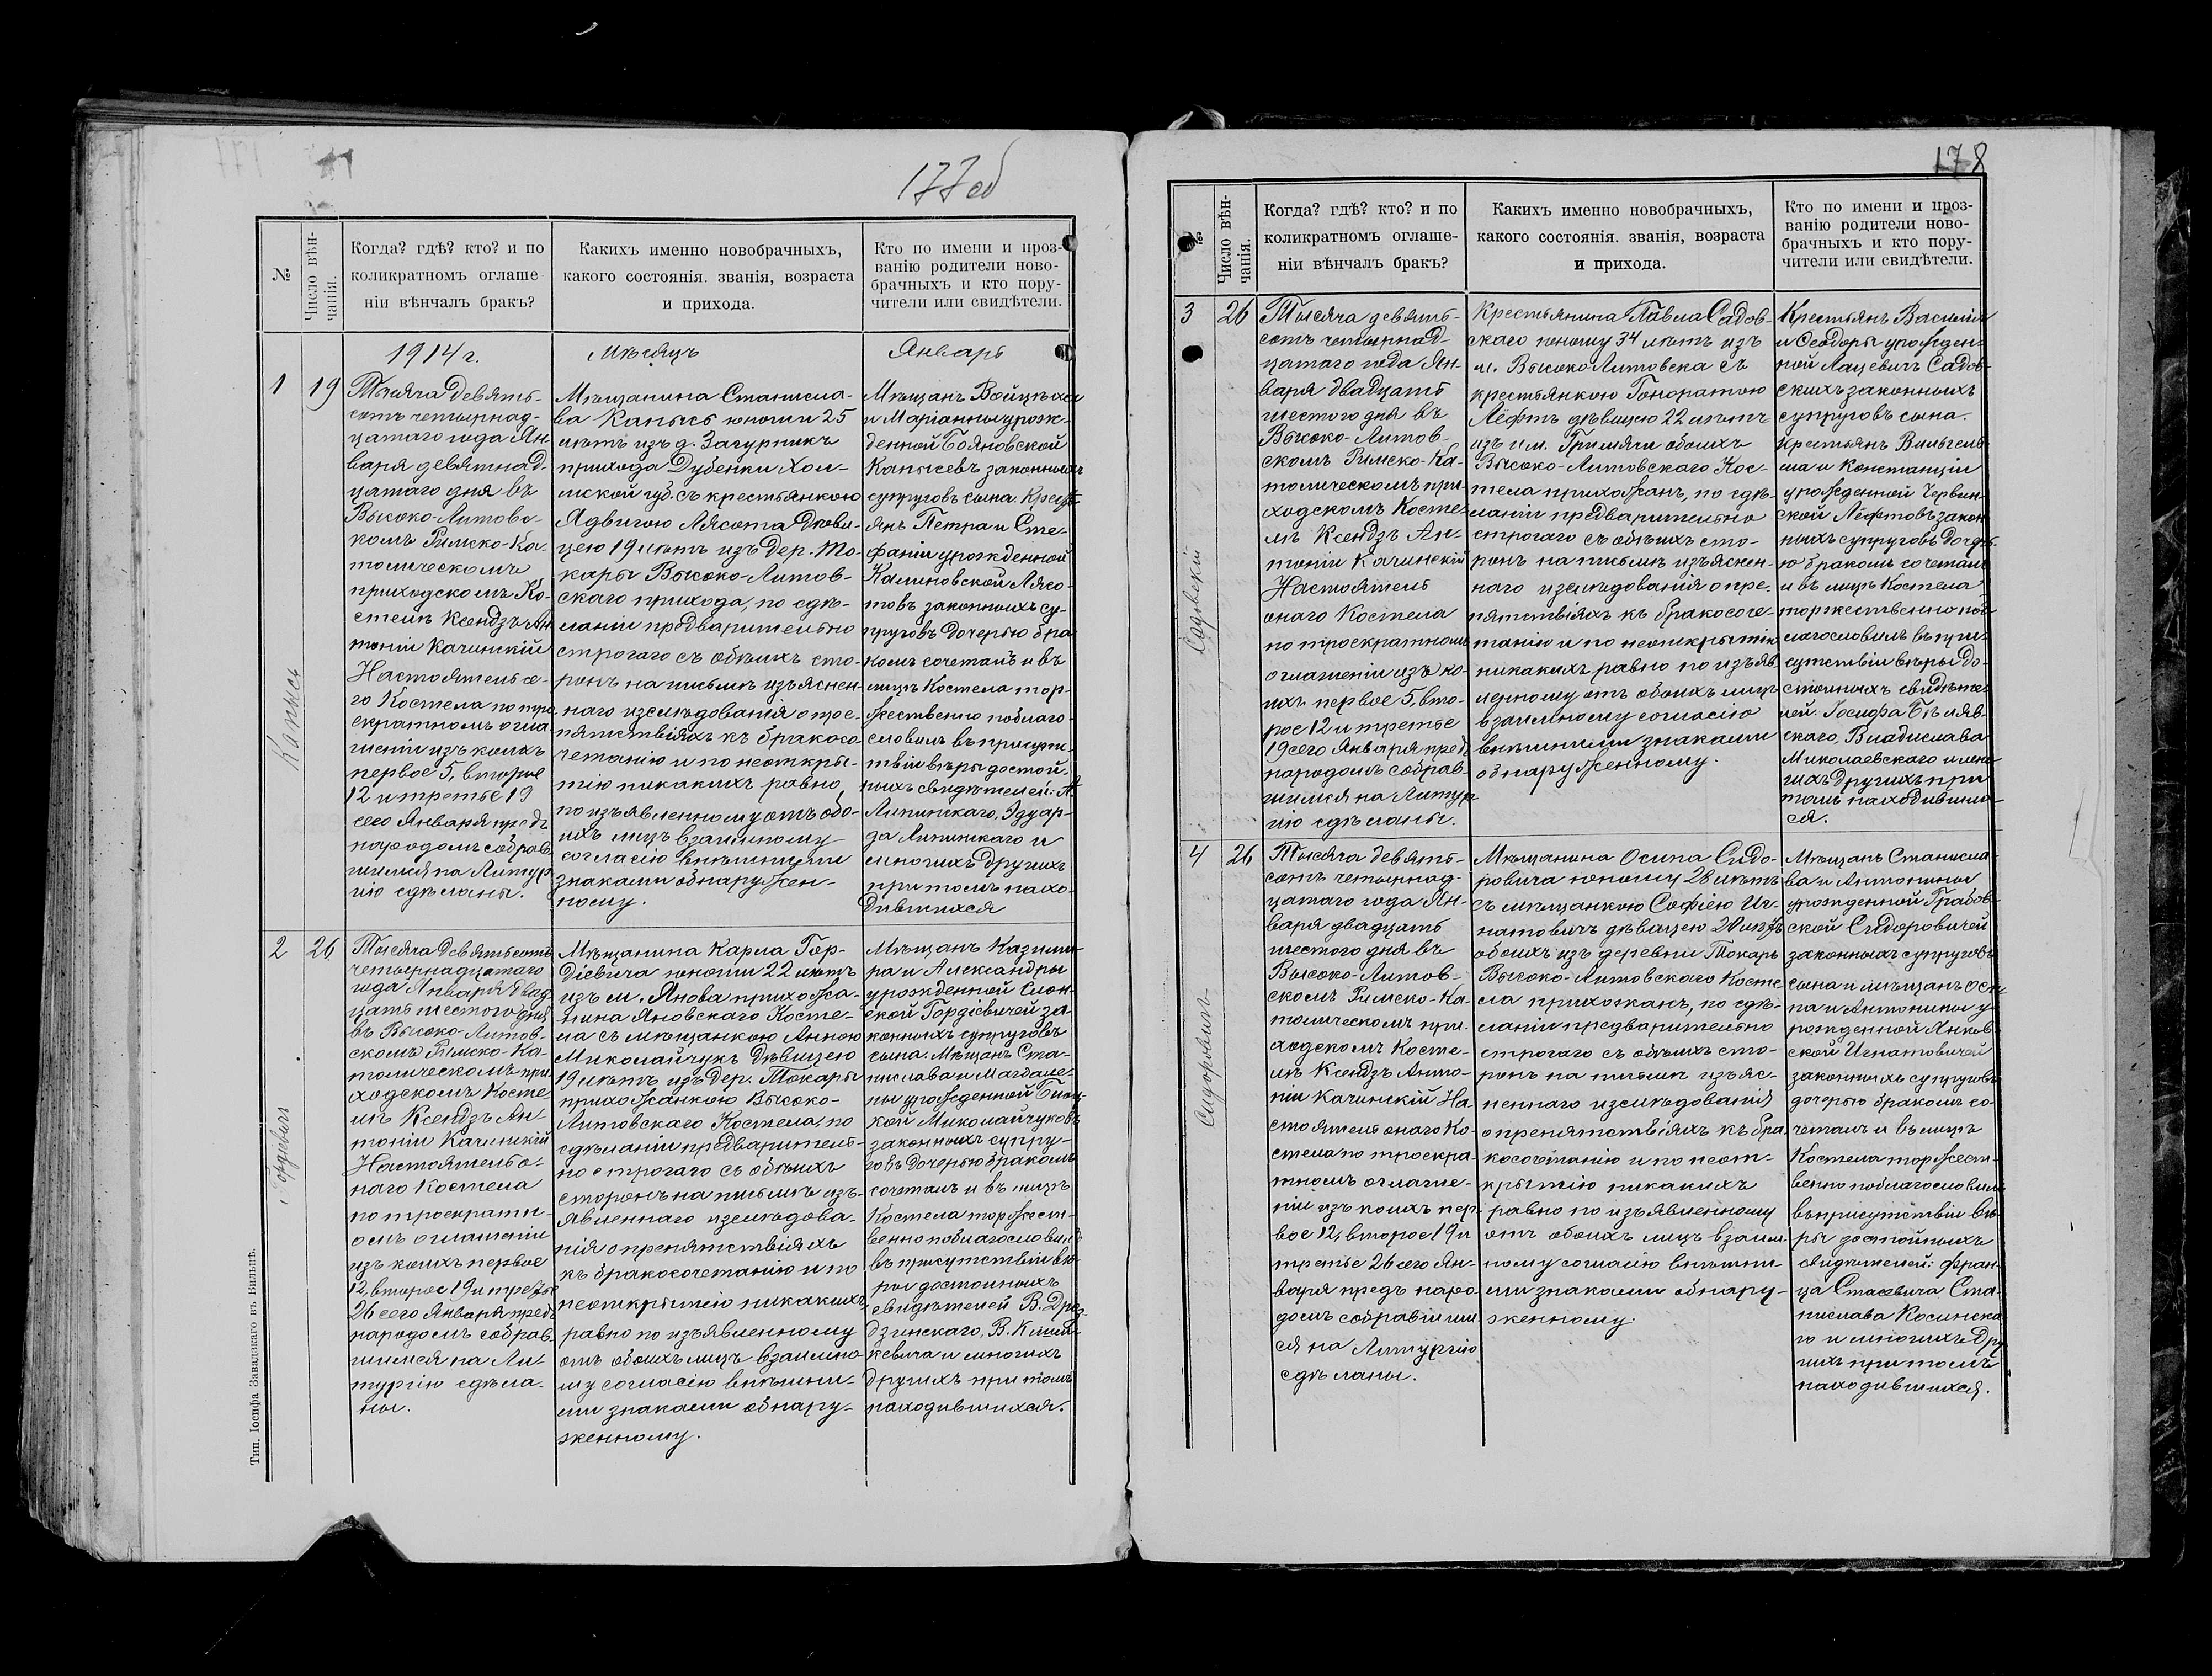 177 об
№
Число вѣн-
чанія.
Когда? гдѣ? кто? и по
коликратномъ оглаше-
ніи вѣнчалъ бракъ?
Какихъ именно новобрачныхъ,
какого состоянія. званія, возраста
и прихода.
Кто по имени и проз-
ванію родители ново-
брачныхъ и кто пору-
чители или свидѣтели.
1914 г.
Мѣсяцъ
Январь
1
19
Канысь
Тысяча девять-
сотъ четырнад-
цатаго года Ян-
варя девятнад-
цатаго дня въ
Высоко-Литовс-
комъ Римско-Ка-
толическомъ
приходскомъ Ко-
стелѣ Ксендзъ Ан
тоній Качинскій
Настоятель се-
го Костела по тро
екратномъ огла-
шеніи изъ коихъ
первое 5, второе
12 и третье 19
сего Января предъ
народомъ собрав
шимся на Литур
гію сдѣланы.
Мѣщанина Станисла-
ва Канысь юноши 25
лѣтъ изъ д. Загурникъ
прихода Дубенки Хол-
мской губ. съ крестьянкою
Ядвигою Лясота Дѣви-
цею 19 лѣтъ изъ дер. То-
кары Высоко-Литов-
скаго прихода, по сдѣ-
ланіи предварительно
строгаго съ обѣихъ сто-
ронъ на письмѣ изъяснен-
наго изслѣдованія о пре-
пятствіяхъ къ бракосо-
четанію и по неоткры-
тію никакихъ равно
по изъявленному отъ обо-
ихъ лицъ взаимному
согласію внѣшними
знаками обнаружен-
ному.
Мѣщанъ Войцѣха
и Маріанны урож-
денной Бояновской
Канысевъ законныхъ
супруговъ сына. Кресть
янъ Петра и Сте-
фаніи урожденной
Калиновской Лясо-
товъ законныхъ су-
пруговъ дочерью бра
комъ сочеталъ и въ
лицѣ Костела тор-
жественно поблаго-
словилъ въ присутс-
твіи вѣры достой-
ныхъ свидѣтелей: А.
Липинскаго, Эдуар-
да Липинскаго и
многихъ другихъ
при томъ нахо-
дившихся
2
26
Гордѣвич
Тысяча девятьсотъ
четырнадцатаго
года Января двад
цать шестого дня
въ Высоко-Литов-
скомъ Римско-Ка-
толическомъ при-
ходскомъ Косте
лѣ Ксендзъ Ан
тоній Качинскій
Настоятель о-
наго Костела
по троекратн-
омъ оглашеніи
изъ коихъ первое
12, второе 19 и третье
26 сего Января предъ
народомъ собрав
шимся на Ли-
тургію сдѣла-
ны.
Мѣщанина Карла Гор-
діевича юноши 22 лѣтъ
изъ м. Янова прихожа-
нина Яновскаго Косте-
ла съ мѣщанкою Анною
Миколайчукъ Дѣвицею
19 лѣтъ изъ дер. Токары
прихожанкою Высоко-
Литовскаго Костела, по
сдѣланіи предваритель-
но строгаго съ обѣихъ
сторонъ на письмѣ изъ-
явленнаго изслѣдова-
нія о препятствіяхъ
къ бракосочетанію и по
неоткрытію никакихъ,
равно по изъявленному
отъ обоихъ лицъ взаимно
му согласію внѣшни-
ми знаками обнару-
женному.
Мѣщанъ Казими-
ра и Александры
урожденной Слон-
ской Гордіевичей за-
конныхъ супруговъ
сына. Мѣщанъ Ста-
нислава и Магдале-
ны урожденной
кой Миколайчуковъ
законныхъ супру-
говъ дочерью бракомъ
сочеталъ и въ лицѣ
Костела торжест-
венно поблагословилъ
въ присутствіи вѣ-
ры достойныхъ
свидѣтелей В.
дзинскаго, В.
кевича и многихъ
другихъ при томъ
находившихся.
Тип. Іосифа Завадзкаго въ Вильнѣ.
178
№
Число вѣн-
чанія.
Когда? гдѣ? кто? и по
коликратномъ оглаше-
ніи вѣнчалъ бракъ?
Какихъ именно новобрачныхъ,
какого состоянія. званія, возраста
и прихода.
Кто по имени и проз-
ванію родители ново-
брачныхъ и кто пору-
чители или свидѣтели.
3
26
Садовскій
Тысяча девять-
сотъ четырнад-
цатаго года Ян-
варя двадцать
шестого дня въ
Высоко-Литов-
скомъ Римско-Ка-
толическомъ при-
ходскомъ Косте-
лѣ Ксендзъ Ан-
тоній Качинскій
Настоятель
онаго Костела
по троекратномъ
оглашеніи изъ ко-
ихъ первое 5, вто-
рое 12 и третье
19 сего Января предъ
народомъ собрав-
шимся на Литур
гію сдѣланы.
Крестьянина Павла Садов-
скаго юношу 34 лѣтъ изъ
м. Высоко-Литовска съ
крестьянкою Гоноратою
Лефтъ дѣвицею 22 лѣтъ
изъ им. Гримячи обоихъ
Высоко-Литовскаго Кос-
тела прихожанъ, по сдѣ-
ланіи предварительно
строгаго съ обѣихъ сто-
ронъ на письмѣ изъяснен-
наго изслѣдованія о пре-
пятствіяхъ къ бракосоче-
танію и по неоткрытію
никакихъ равно по изъяв
ленному отъ обоихъ лицъ
взаимному согласію
внѣшними знаками
обнаруженному.
Крестьянъ Василія
и Ѳеодоры урожден-
ной Лацевичъ Садов-
скихъ законныхъ
супруговъ сына.
Крестьянъ Вильгель
ма и Констанціи
урожденной Червин-
ской Лефтовъ закон
ныхъ супруговъ дочерь-
ю бракомъ сочеталъ
и въ лицѣ Костела
торжественно поб-
лагословилъ въ при-
сутствіи вѣры до-
стойныхъ свидѣте-
лей: Іосифа Бѣляв-
скаго, Владислава
Миколаевскаго и мно
гихъ другихъ при
томъ находивших-
ся.
4
26
Сидоровичъ
Тысяча девять-
сотъ четырнад-
цатаго года Ян-
варя двадцать
шестого дня въ
Высоко-Литов-
скомъ Римско-Ка-
толическомъ при-
ходскомъ Косте-
лѣ Ксендзъ Анто-
ній Качинскій На-
стоятель онаго Ко-
стела по троекра-
тномъ оглаше-
ніи изъ коихъ пер-
вое 12, второе 19 и
третье 26 сего Ян-
варя предъ наро-
домъ собравшим
ся на Литургію
сдѣланы.
Мѣщанина Осипа Сидо-
ровича юношу 28 лѣтъ
съ мѣщанкою Софіею Иг-
натовичъ дѣвицею 20 лѣтъ
обоихъ изъ деревни Токары
Высоко-Литовскаго Косте
ла прихожанъ, по сдѣ-
ланіи предварительно
строгаго съ обѣихъ сто-
ронъ на письмѣ изъяс-
неннаго изслѣдованія
о препятствіяхъ къ бра-
косочетанію и по неот-
крытію никакихъ
равно по изъявленному
отъ обоихъ лицъ взаим
ному согласію внѣшни-
ми знаками обнару-
женному.
Мѣщанъ Станисла-
ва и Антонины
урожденной Грабов-
ской Сидоровичей
законныхъ супруговъ
сына и мѣщанъ Оси
па и Антонины у-
рожденной Янков
ской Игнатовичей
законныхъ супруговъ
дочерью бракомъ со-
четалъ и въ лицѣ
Костела торжест-
венно поблагословилъ
въ присутствіи вѣ-
ры достойныхъ
свидѣтелей: Фран-
ца Стасевича Ста-
нислава Косинска
го и многихъ дру
гихъ при томъ
находившихся.